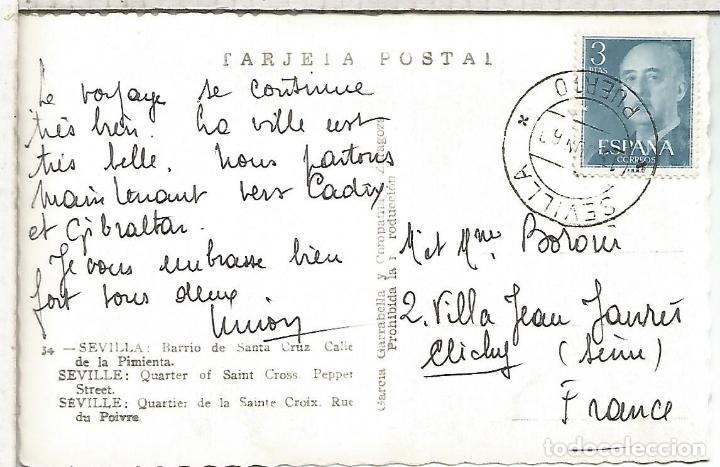 TARJETA POSTAL
Le voyage se continue
très bien. La ville est
très belle. Nous partons
maintenant vers Cadix
et Gibraltar.
Je vous embrasse bien
fort tous deux
34 — SEVILLA: Barrio de Santa Cruz. Calle
de la Pimienta.
SEVILLE: Quarter of Saint Cross. Pepper
Street.
SÉVILLE: Quartier de la Sainte Croix. Rue
du Poivre.
García Garrabella y Compañía Zaragoza
Prohibida la reproducción
3
PTAS
ESPAÑA
CORREOS
SEVILLA
PUERTO
Mr et Mme
2. Villa Jean Jaurès
Clichy (Seine)
France
todocoleccion
todocoleccion.net